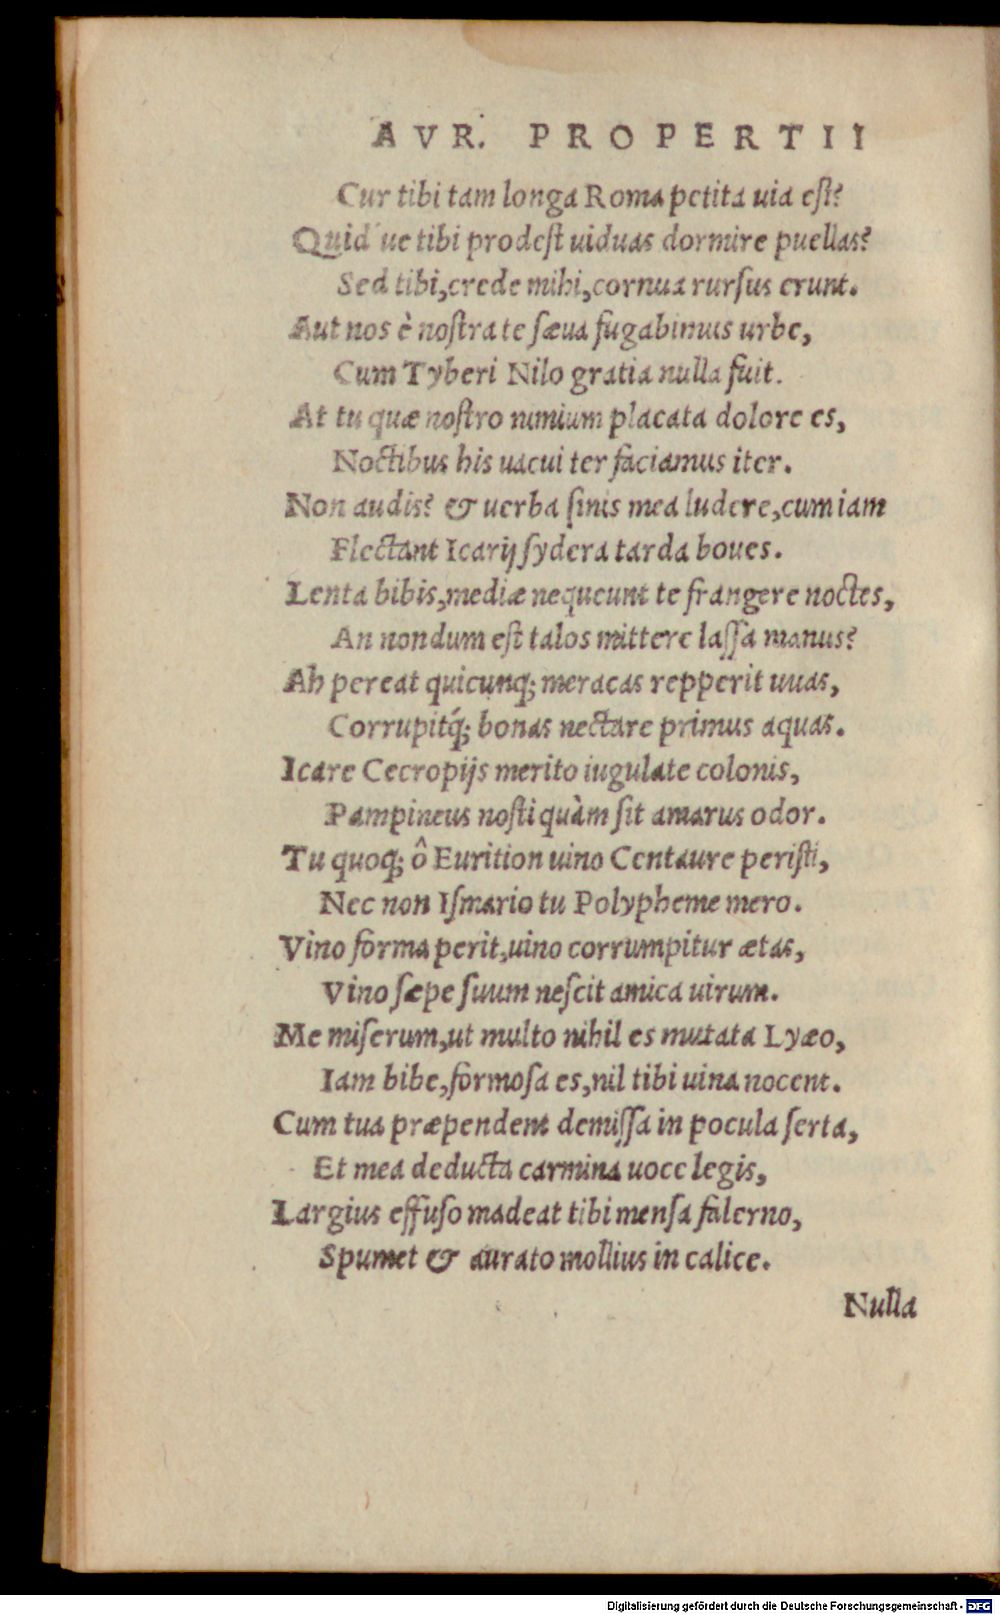 AVR. PROPERTII
Cur tibi tam longa Roma petita uia est?
Quid ue tibi prodest uiduas dormire puellas?
Sed tibi, crede mihi, cornua rursus erunt.
Aut nos è nostra te sæua fugabimus urbe,
Cum Tyberi Nilo gratia nulla fuit.
At tu quæ nostro nimium placata dolore es,
Noctibus his uacui ter faciamus iter.
Non audis? & uerba sinis mea ludere, cum iam
Flectant Icarij sydera tarda boues.
Lenta bibis, mediæ nequeunt te frangere noctes,
An nondum est talos mittere lassa manus?
Ah pereat quicunq; meracas repperit uuas,
Corrupitq́; bonas nectare primus aquas.
Icare Cecropijs merito iugulate colonis,
Pampineus nosti quàm sit amarus odor.
Tu quoq; ô Eurition uino Centaure peristi,
Nec non Ismario tu Polypheme mero.
Vino forma perit, uino corrumpitur ætas,
Vino sæpe suum nescit amica uirum.
Me miserum, ut multo nihil es mutata Lyæo,
Iam bibe, formosa es, nil tibi uina nocent.
Cum tua præpendent demissa in pocula serta,
Et mea deducta carmina uoce legis,
Largius effuso madeat tibi mensa falerno,
Spumet & aurato mollius in calice.
Nulla
Digitalisierung gefördert durch die Deutsche Forschungsgemeinschaft - DFG